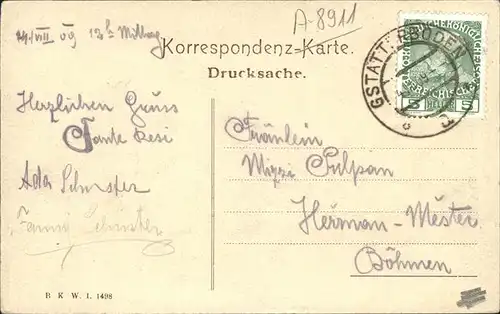 A-8911
14./VII 09 12h Mittag
Korrespondenz-Karte.
Drucksache.
GSTATTERBODEN
5 HELLER 5
Herzlichen Gruss
Tante Resi
Ada Schuster
Fanny Schuster
Fräulein
Mizzi Pulpan
Herman-Městec
Böhmen
B K W. I. 1498